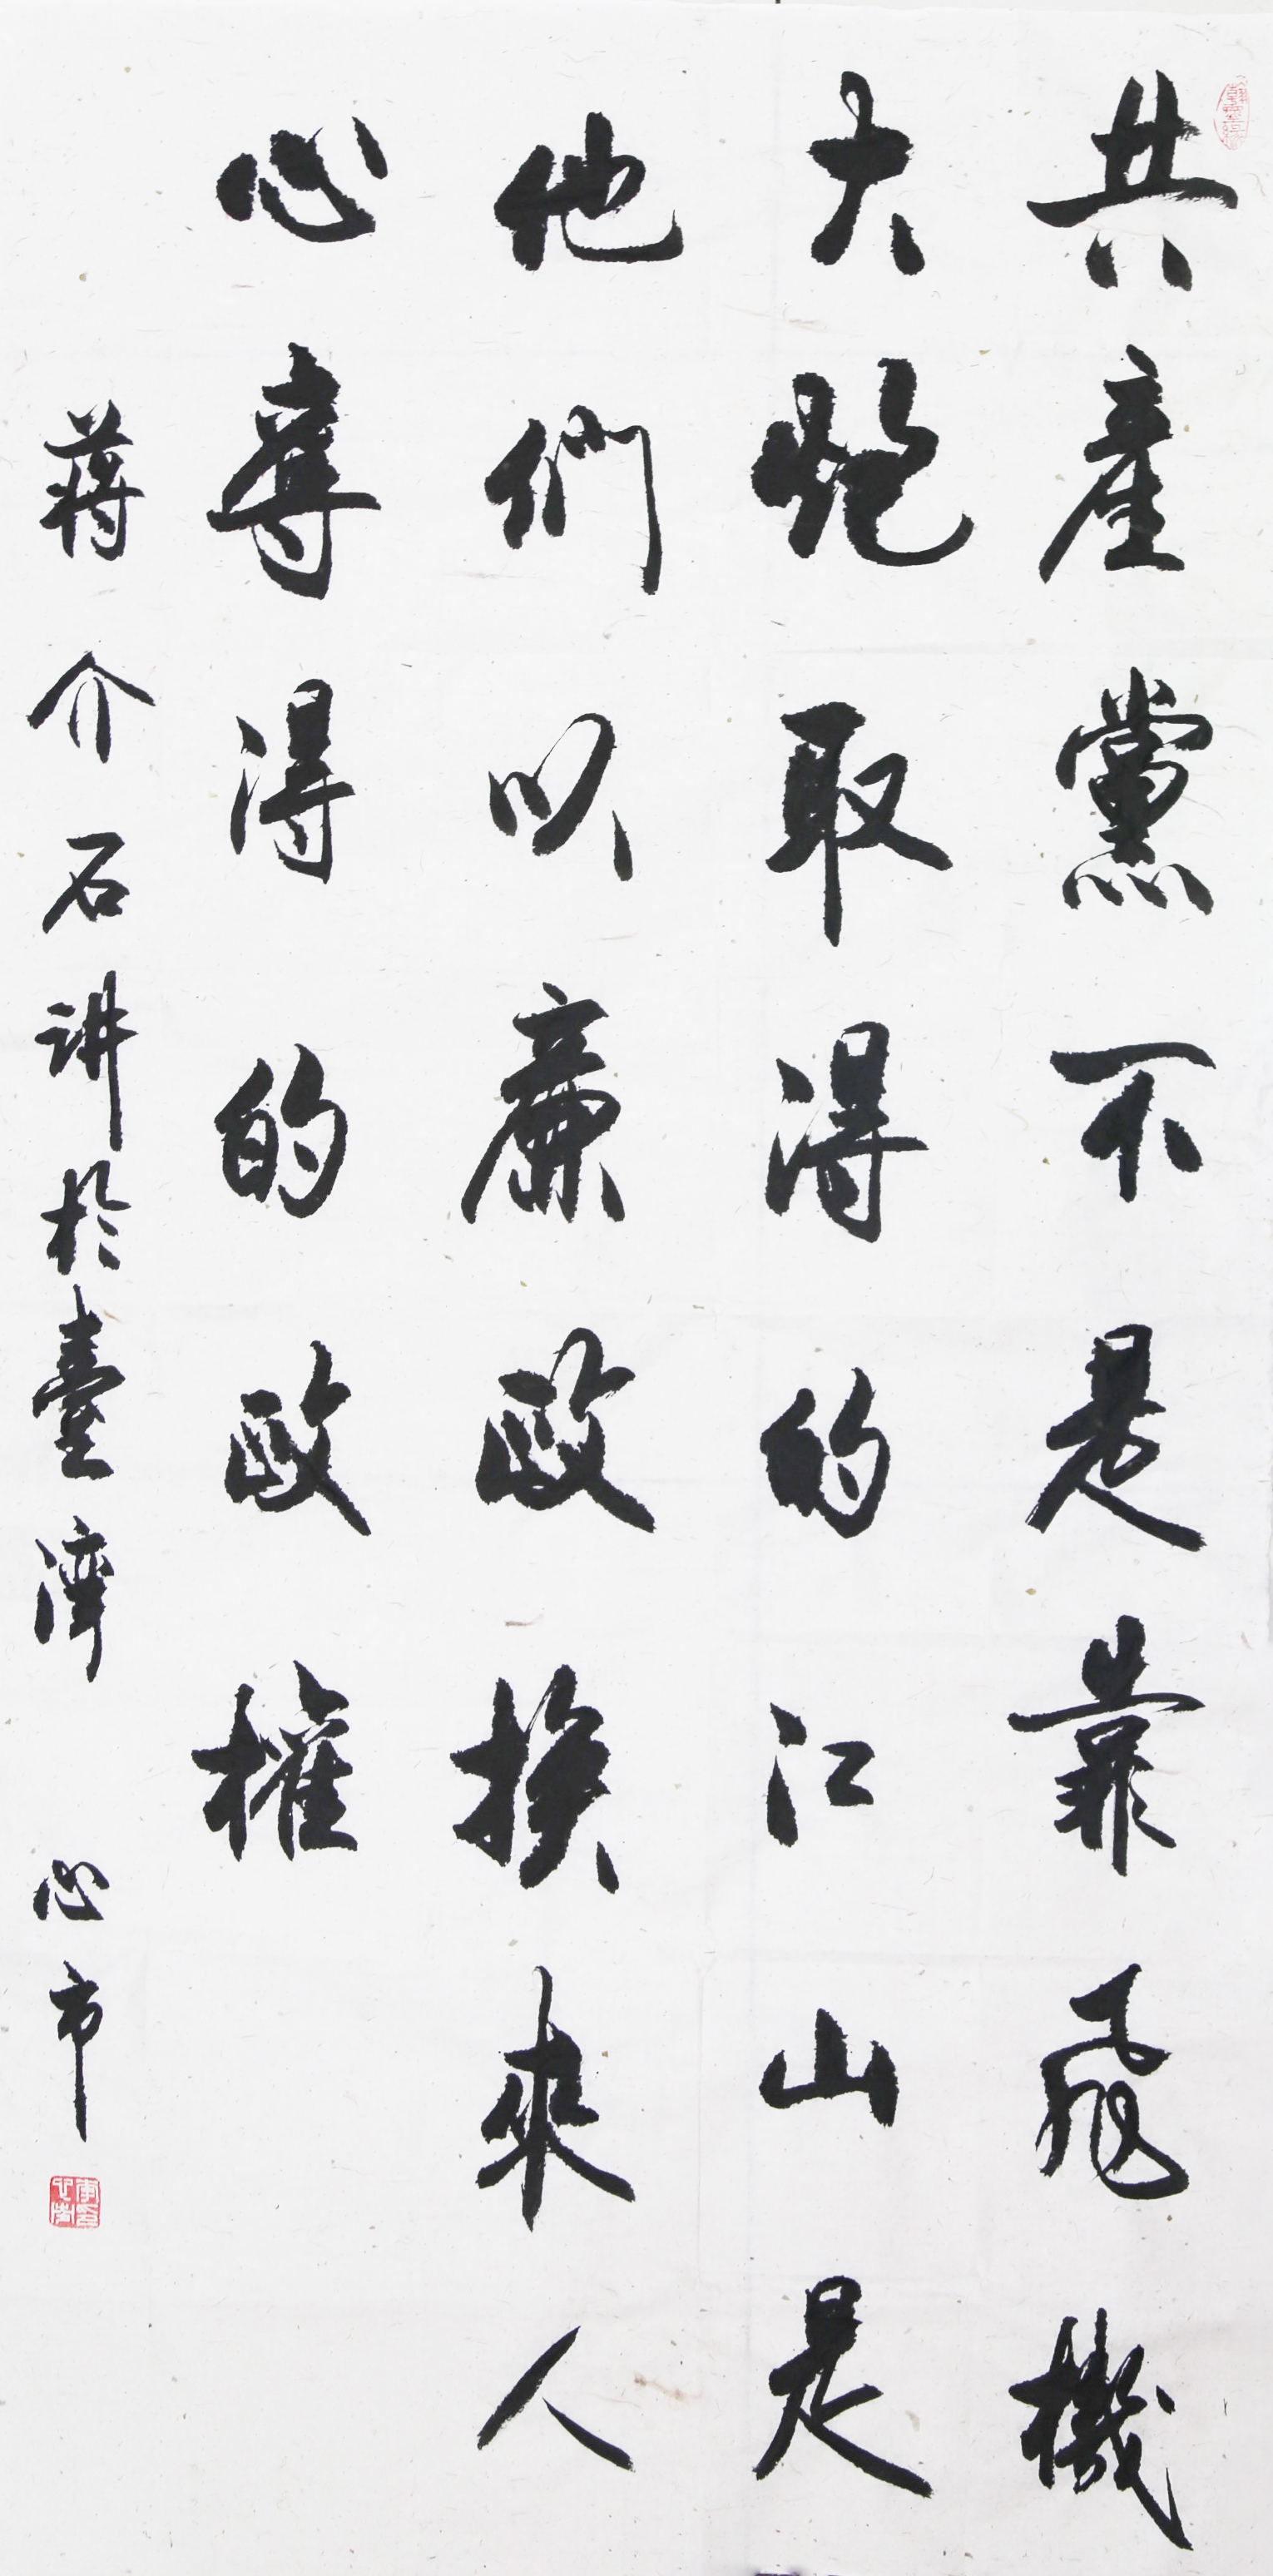 共產黨不是靠飛機
大炮取得的江山是
他們以廉政換來人
心奪得的政權
蔣介石讲於臺灣 心市